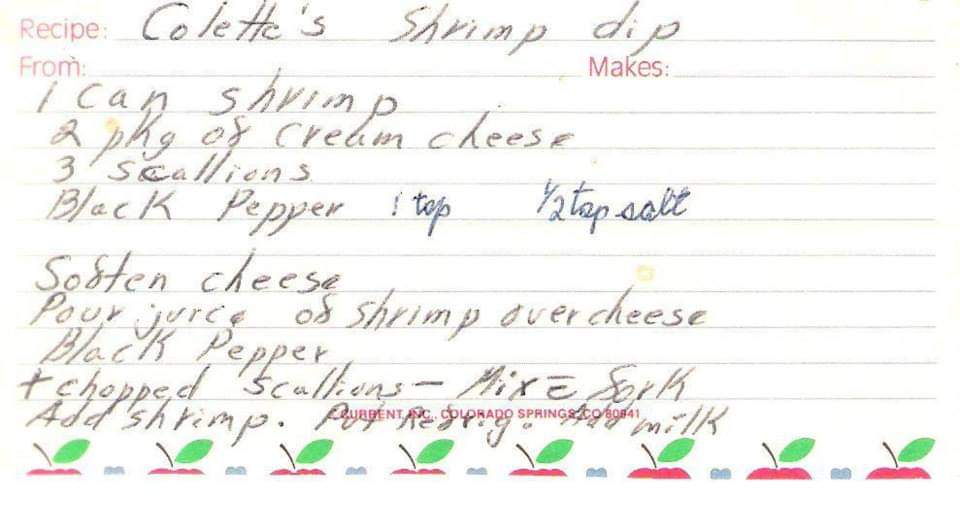 Recipe: Colette's Shrimp dip
From: Makes:
1 Can shrimp
2 pkg of cream cheese
3 scallions
Black Pepper 1 tsp 1/2 tsp salt
Soften cheese
Pour juice of shrimp over cheese
Black Pepper
+ chopped scallions - Mix c̄ fork
Add shrimp. Put Refrig. Add milk
CURRENT, INC., COLORADO SPRINGS, CO 80941